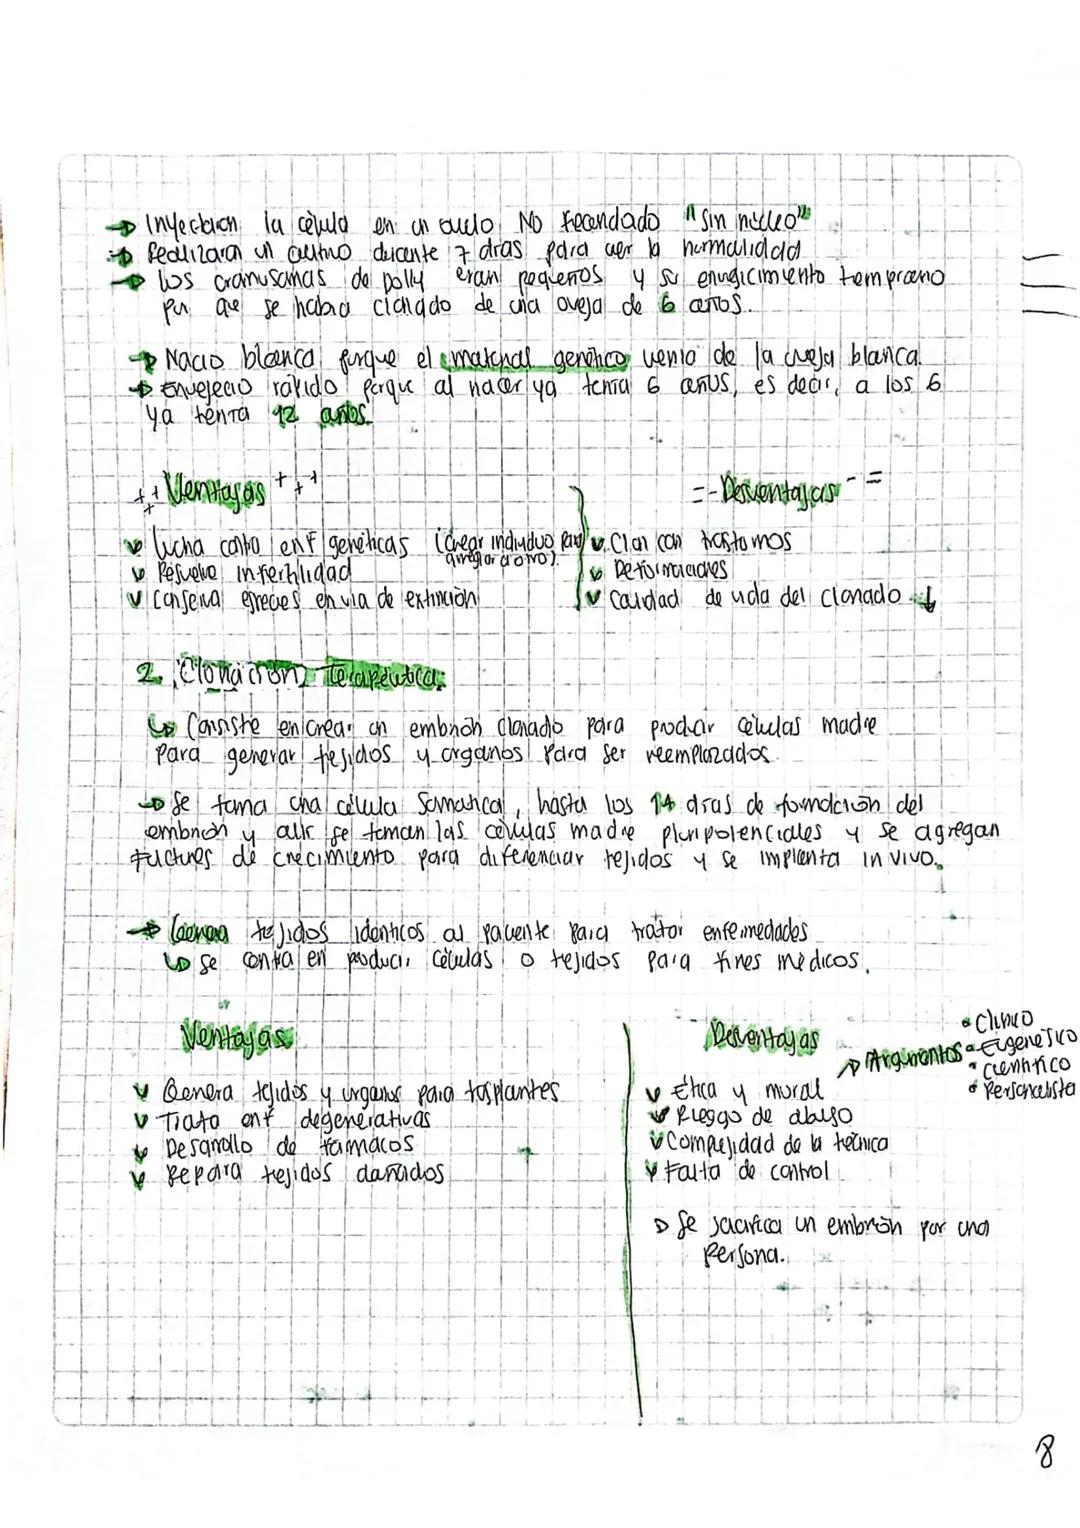 → Inyectaron la célula en un óvulo NO fecundado "sin núcleo"
→ Realizaron un cultivo durante 7 días para ver la normalidad
→ Los cromosomas de Dolly eran pequeños y su envejecimiento temprano
por que se había clonado de una oveja de 6 años.
→ Nació blanca porque el material genético venía de la oveja blanca.
→ Envejeció rápido porque al nacer ya tenía 6 años, es decir, a los 6
ya tenía 12 años.
Ventajas
✓ Lucha contra enf genéticas (Crear individuo para
arreglar a otro).
✓ Resuelve infertilidad
✓ Conserva especies en vía de extinción
Desventajas
✓ Clon con trastornos
✓ Deformaciones
✓ Calidad de vida del clonado ↓
2. Clonación Terapéutica.
↳ Consiste en crear un embrión clonado para producir células madre
para generar tejidos y órganos para ser reemplazados.
→ Se toma una célula somática, hasta los 14 días de formación del
embrión y allí se toman las células madre pluripotenciales y se agregan
factores de crecimiento para diferenciar tejidos y se implanta in vivo.
→ Genera tejidos idénticos al paciente para tratar enfermedades
↳ Se centra en producir células o tejidos para fines médicos.
Ventajas
✓ Genera tejidos y órganos para trasplantes
✓ Trata enf degenerativas
✓ Desarrollo de fármacos
✓ Repara tejidos dañados
Desventajas
→ Argumentos
• Clínico
• Eugenésico
• Científico
• Personalista
✓ Ética y moral
✓ Riesgo de abuso
✓ Complejidad de la técnica
✓ Falta de control
→ Se sacrifica un embrión por una
persona.
8